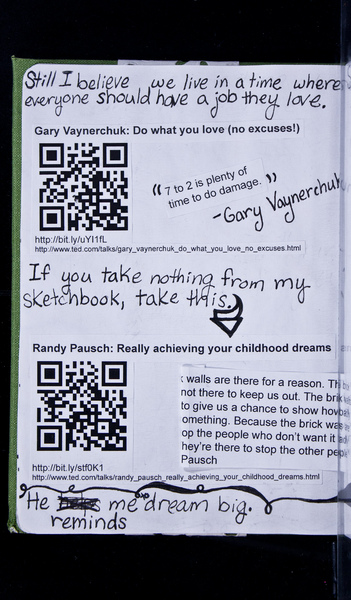 Still I believe we live in a time where
everyone should have a job they love.
Gary Vaynerchuk: Do what you love (no excuses!)
"7 to 2 is plenty of
time to do damage."
-Gary Vaynerchuk
http://bit.ly/uYI1fL
http://www.ted.com/talks/gary_vaynerchuk_do_what_you_love_no_excuses.html
If you take nothing from my
sketchbook, take this
Randy Pausch: Really achieving your childhood dreams
walls are there for a reason. Th
not there to keep us out. The brick
to give us a chance to show how ba
omething. Because the brick wa
op the people who don't want it
hey're there to stop the other peop
Pausch
http://bit.ly/stf0K1
http://www.ted.com/talks/randy_pausch_really_achieving_your_childhood_dreams.html
He me to dream big.
reminds